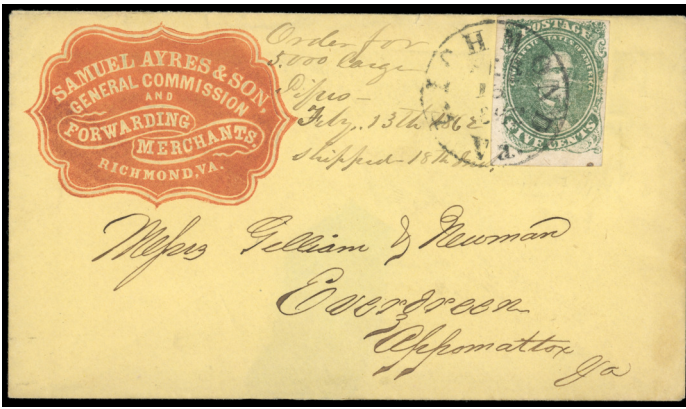 SAMUEL AYRES & SON,
GENERAL COMMISSION
AND
FORWARDING
MERCHANTS.
RICHMOND, VA.
Order for
5,000 large
Pipes –
Feby. 13th 1862
shipped 18th
POSTAGE
CONFEDERATE STATES OF AMERICA
FIVE CENTS
RICHMOND
VA.
Messrs Gilliam & Newman
Evergreen
Appomattox
Va